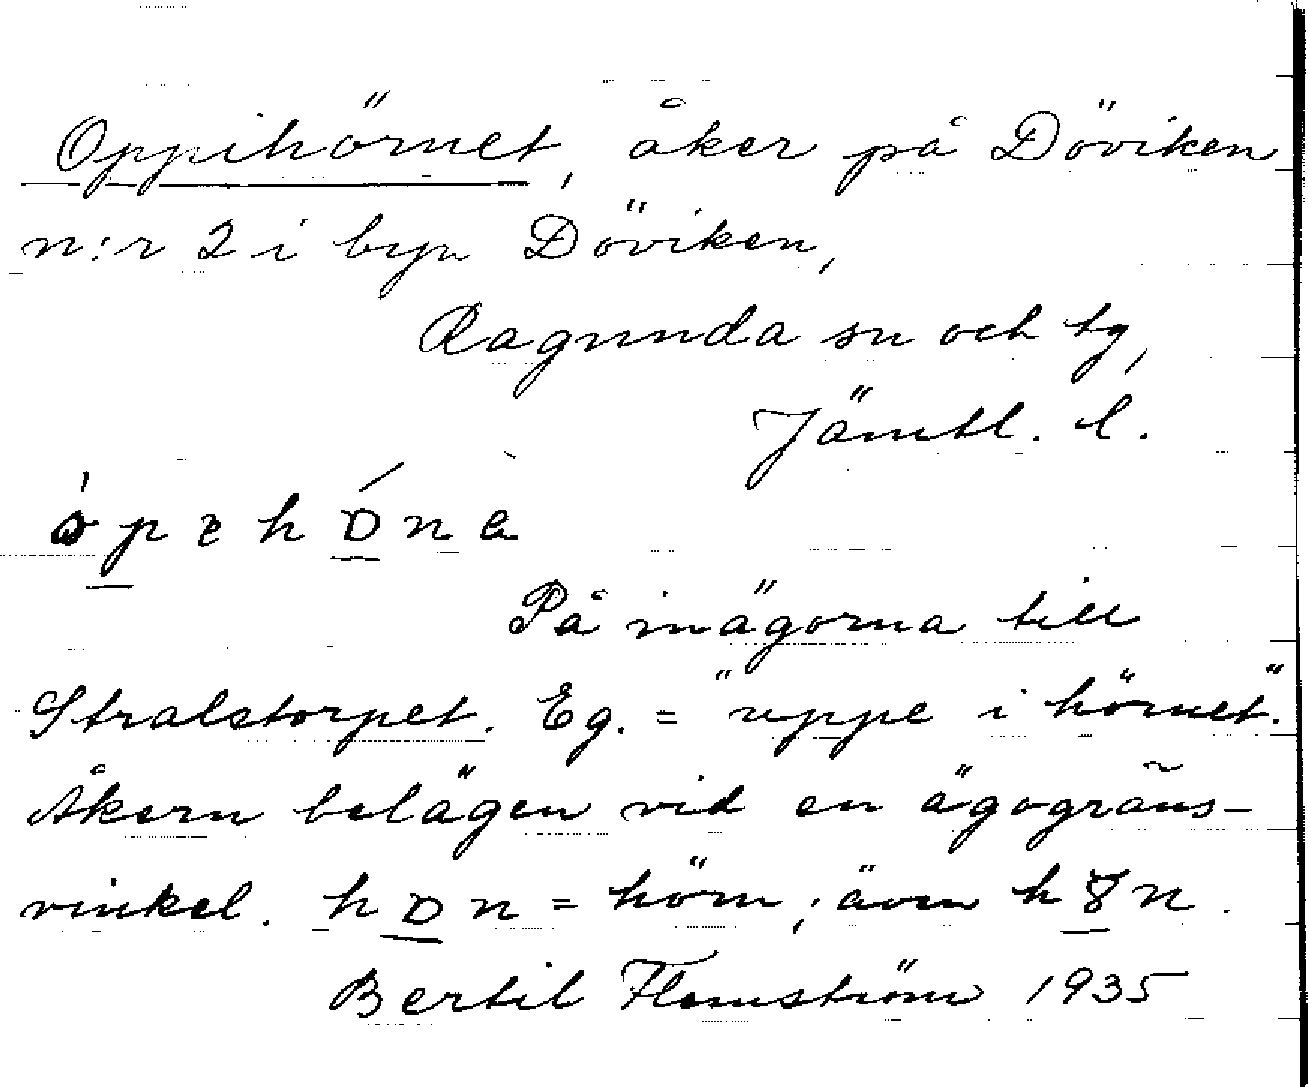 Oppihörnet, åker på Döviken
n:r 2 i byn Döviken,
Ragunda sn och tg,
Jämtl. l.
På inägorna till
Stralstorpet. Eg. = "uppe i hörnet."
Åkern belägen vid en ägogräns-
vinkel. = hörn; även
Bertil Flemström 1935